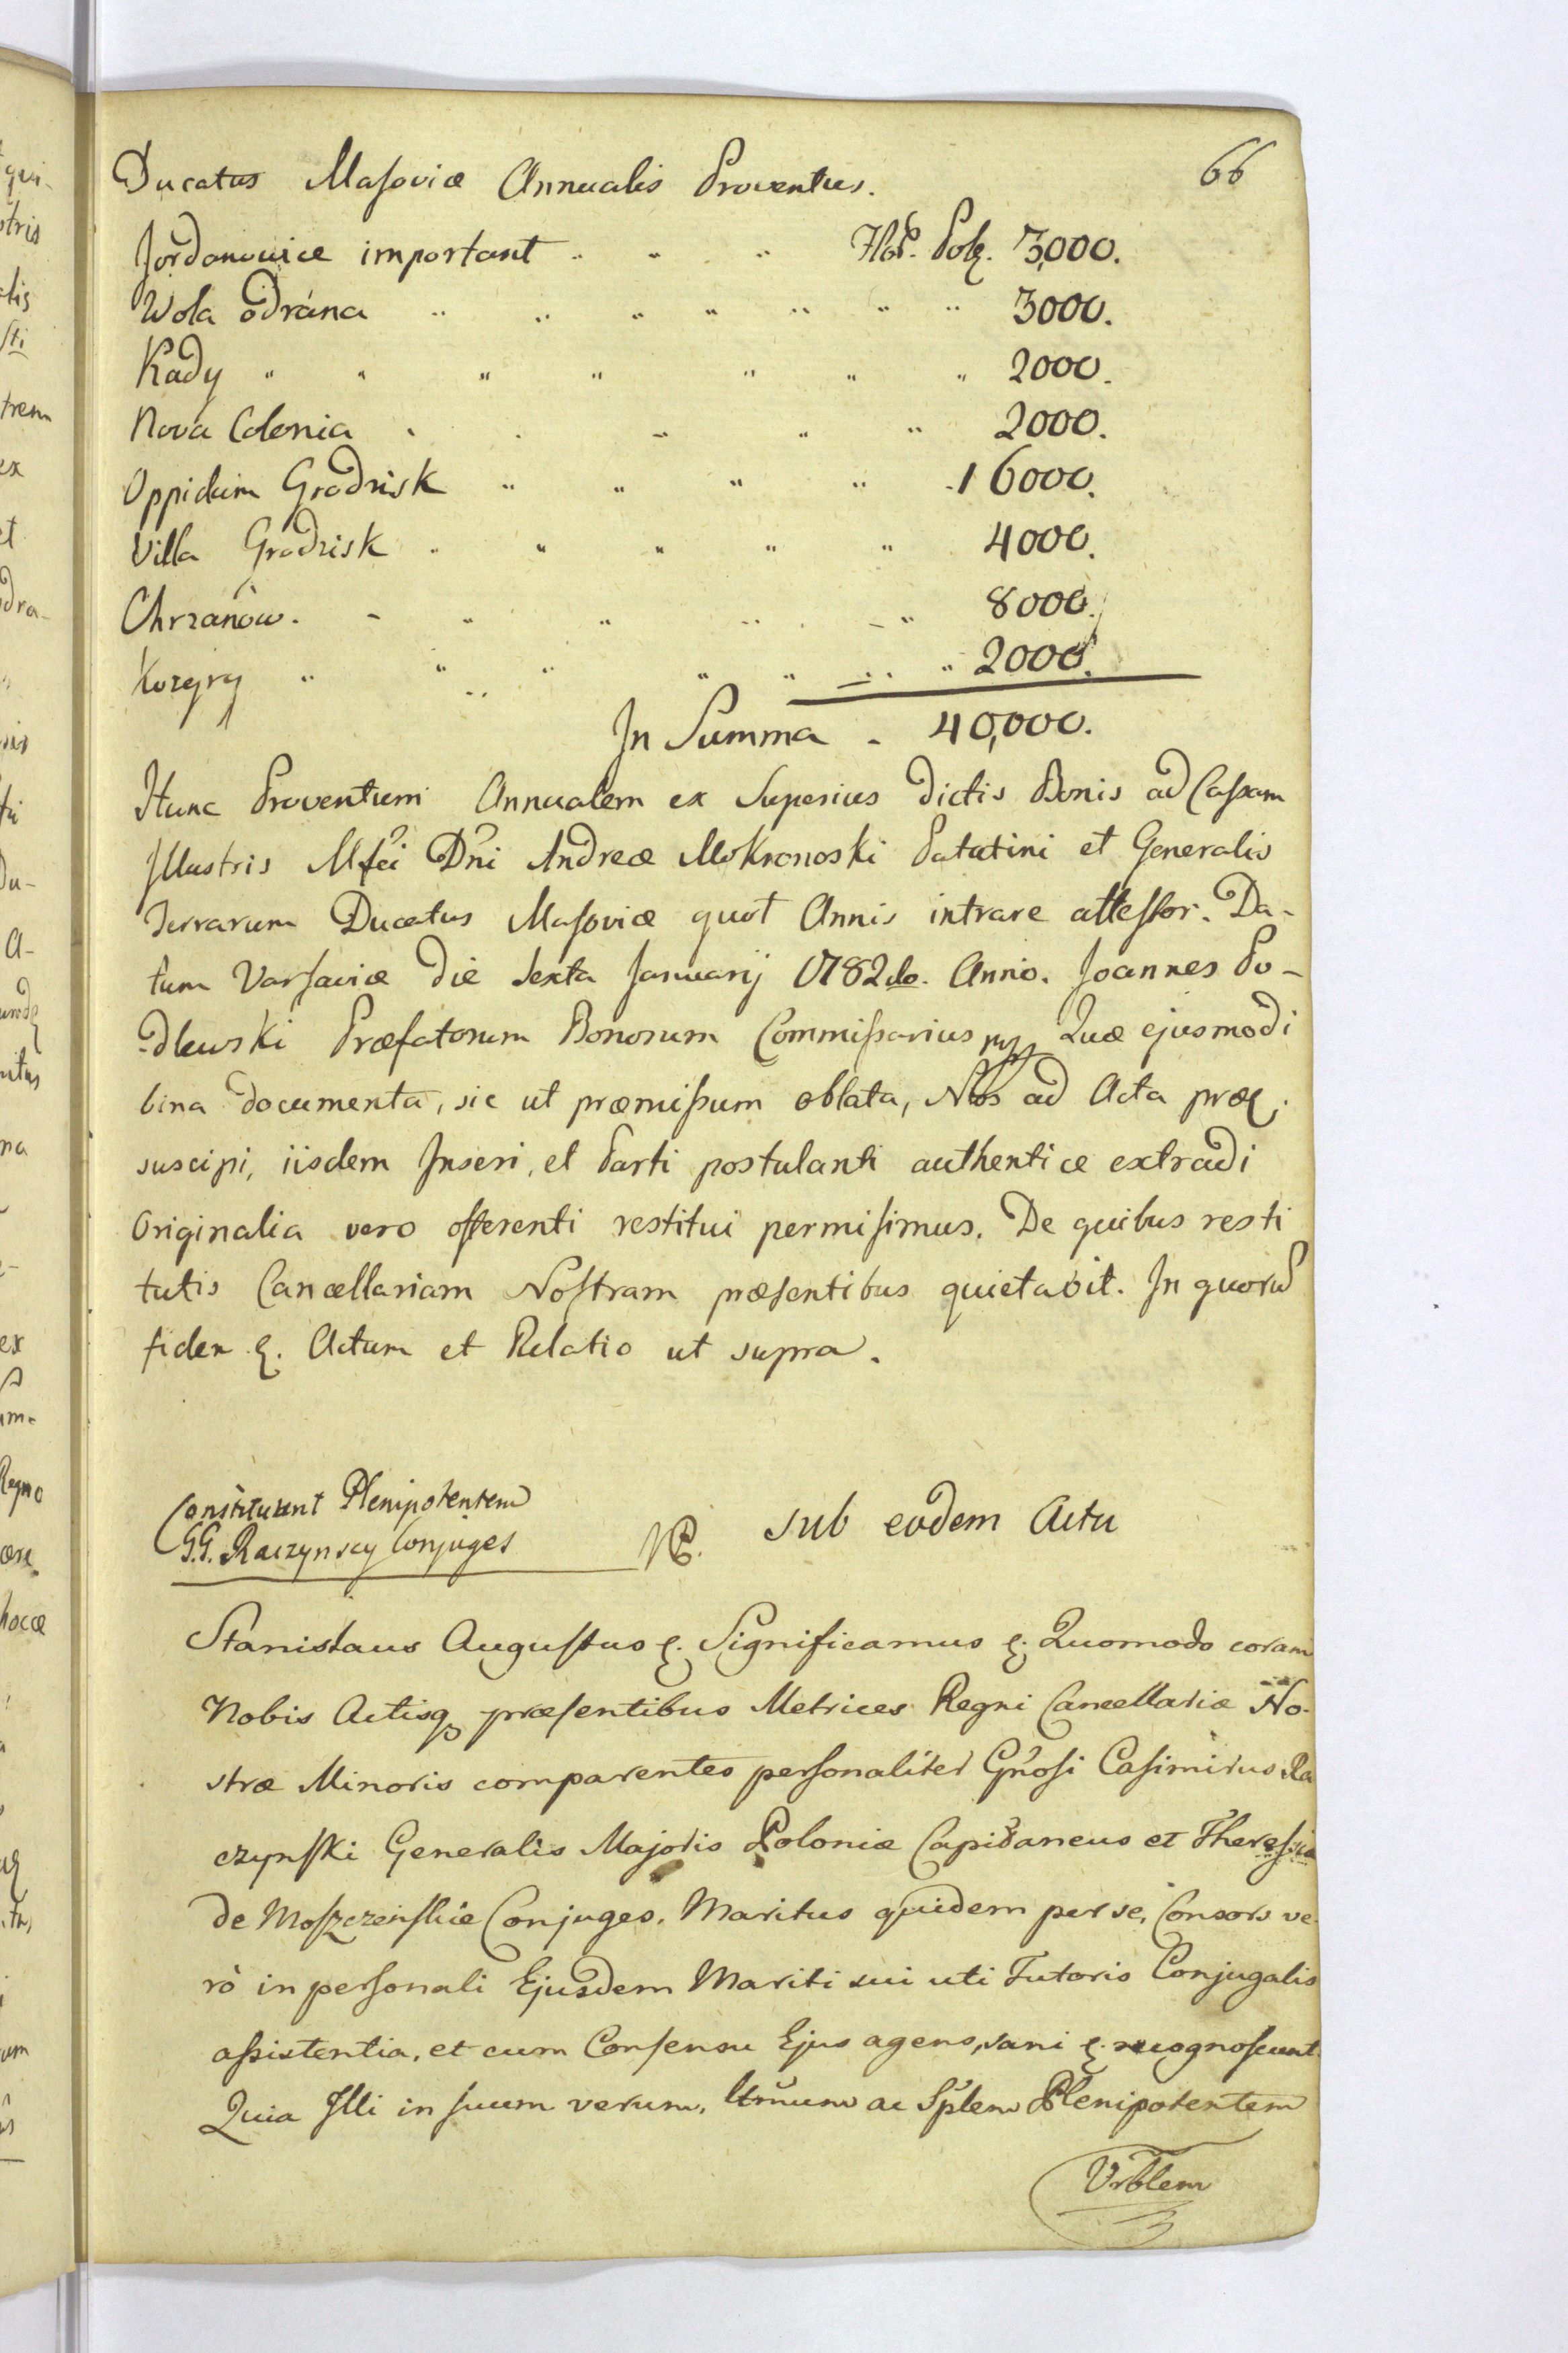 66
Ducatus Masoviæ Annualis Proventus.
Jordanowice important .. .. .. Flor. Polq. 3,000.
Wola odrána .. .. .. .. .. .. .. 3000.
Kady " " " " " " " 2000.
Nova Colonia . . .. .. .. 2000.
Oppidum Grodzisk .. .. .. .. 16000.
Villa Grodzisk . " " " " 4000.
Chrzanów. - .. .. .. . - .. 8000.
Kozery " .. " .. " .. .. " 2000.
In Summa - 40,000.
Hunc Proventum Annualem ex Superius dictis Bonis ad Cassam
Illustris Mfci Dni Andreæ Mokronoski Palatini et Generalis
Terrarum Ducatus Masoviæ quot Annis intrare attestor. Da-
tum Varsaviæ die Sexta Januarij 1782do. Anno. Joannes Po-
dlewski Præfatorum Bonorum Commissarius Quæ ejusmodi
bina documenta, sic ut præmissum oblata, Nos ad Acta præ
suscipi, iisdem Inseri, et Parti postulanti authentice extradi
Originalia vero offerenti restitui permisimus. De quibus resti
tutis Cancellariam Nostram præsentibus quietavit. In quoru
fidem &. Actum et Relatio ut supra.
Constituunt Plenipotentem
G.G. Raczynscy Conjuges
sub eodem Actu
Stanislaus Augustus &. Significamus &. Quomodo coram
Nobis Actisq præsentibus Metrices Regni Cancellariæ No-
stræ Minoris comparentes personaliter Gnosi Casimirus Ra
czynski Generalis Majoris Poloniæ Capitaneus et Theresia
de Moszczenskie Conjuges. Maritus quidem per se, Consors ve-
rò in personali Ejusdem Mariti sui uti Tutoris Conjugalis
assistentia, et cum Consensu Ejus agens, sani &. recognoscunt.
Quia Illi in suum verum, ltmum ac Splem Plenipotentem
Vrblem